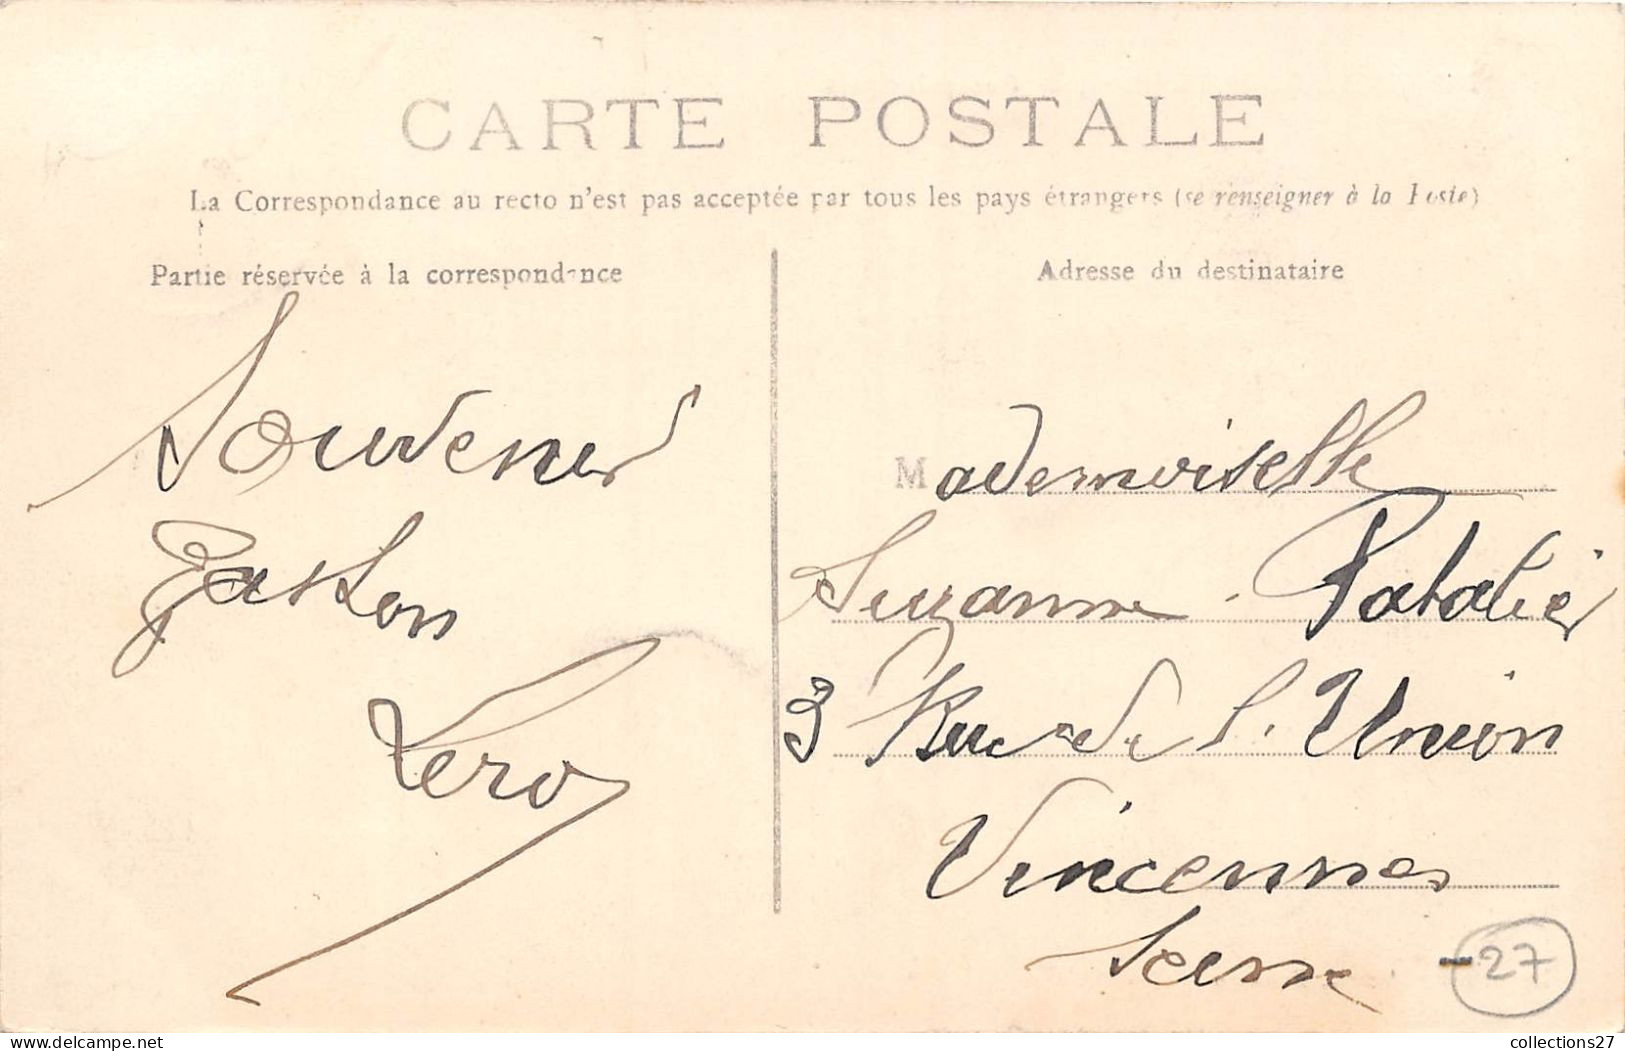 CARTE POSTALE
La Correspondance au recto n'est pas acceptée par tous les pays étrangers (se renseigner à la Poste)
Partie réservée à la correspondance
Souvenir
Gaston
Adresse du destinataire
Mademoiselle
Suzanne Patalier
3 Rue de l'Union
Vincennes
Seine
-27
delcampe.net
collections27